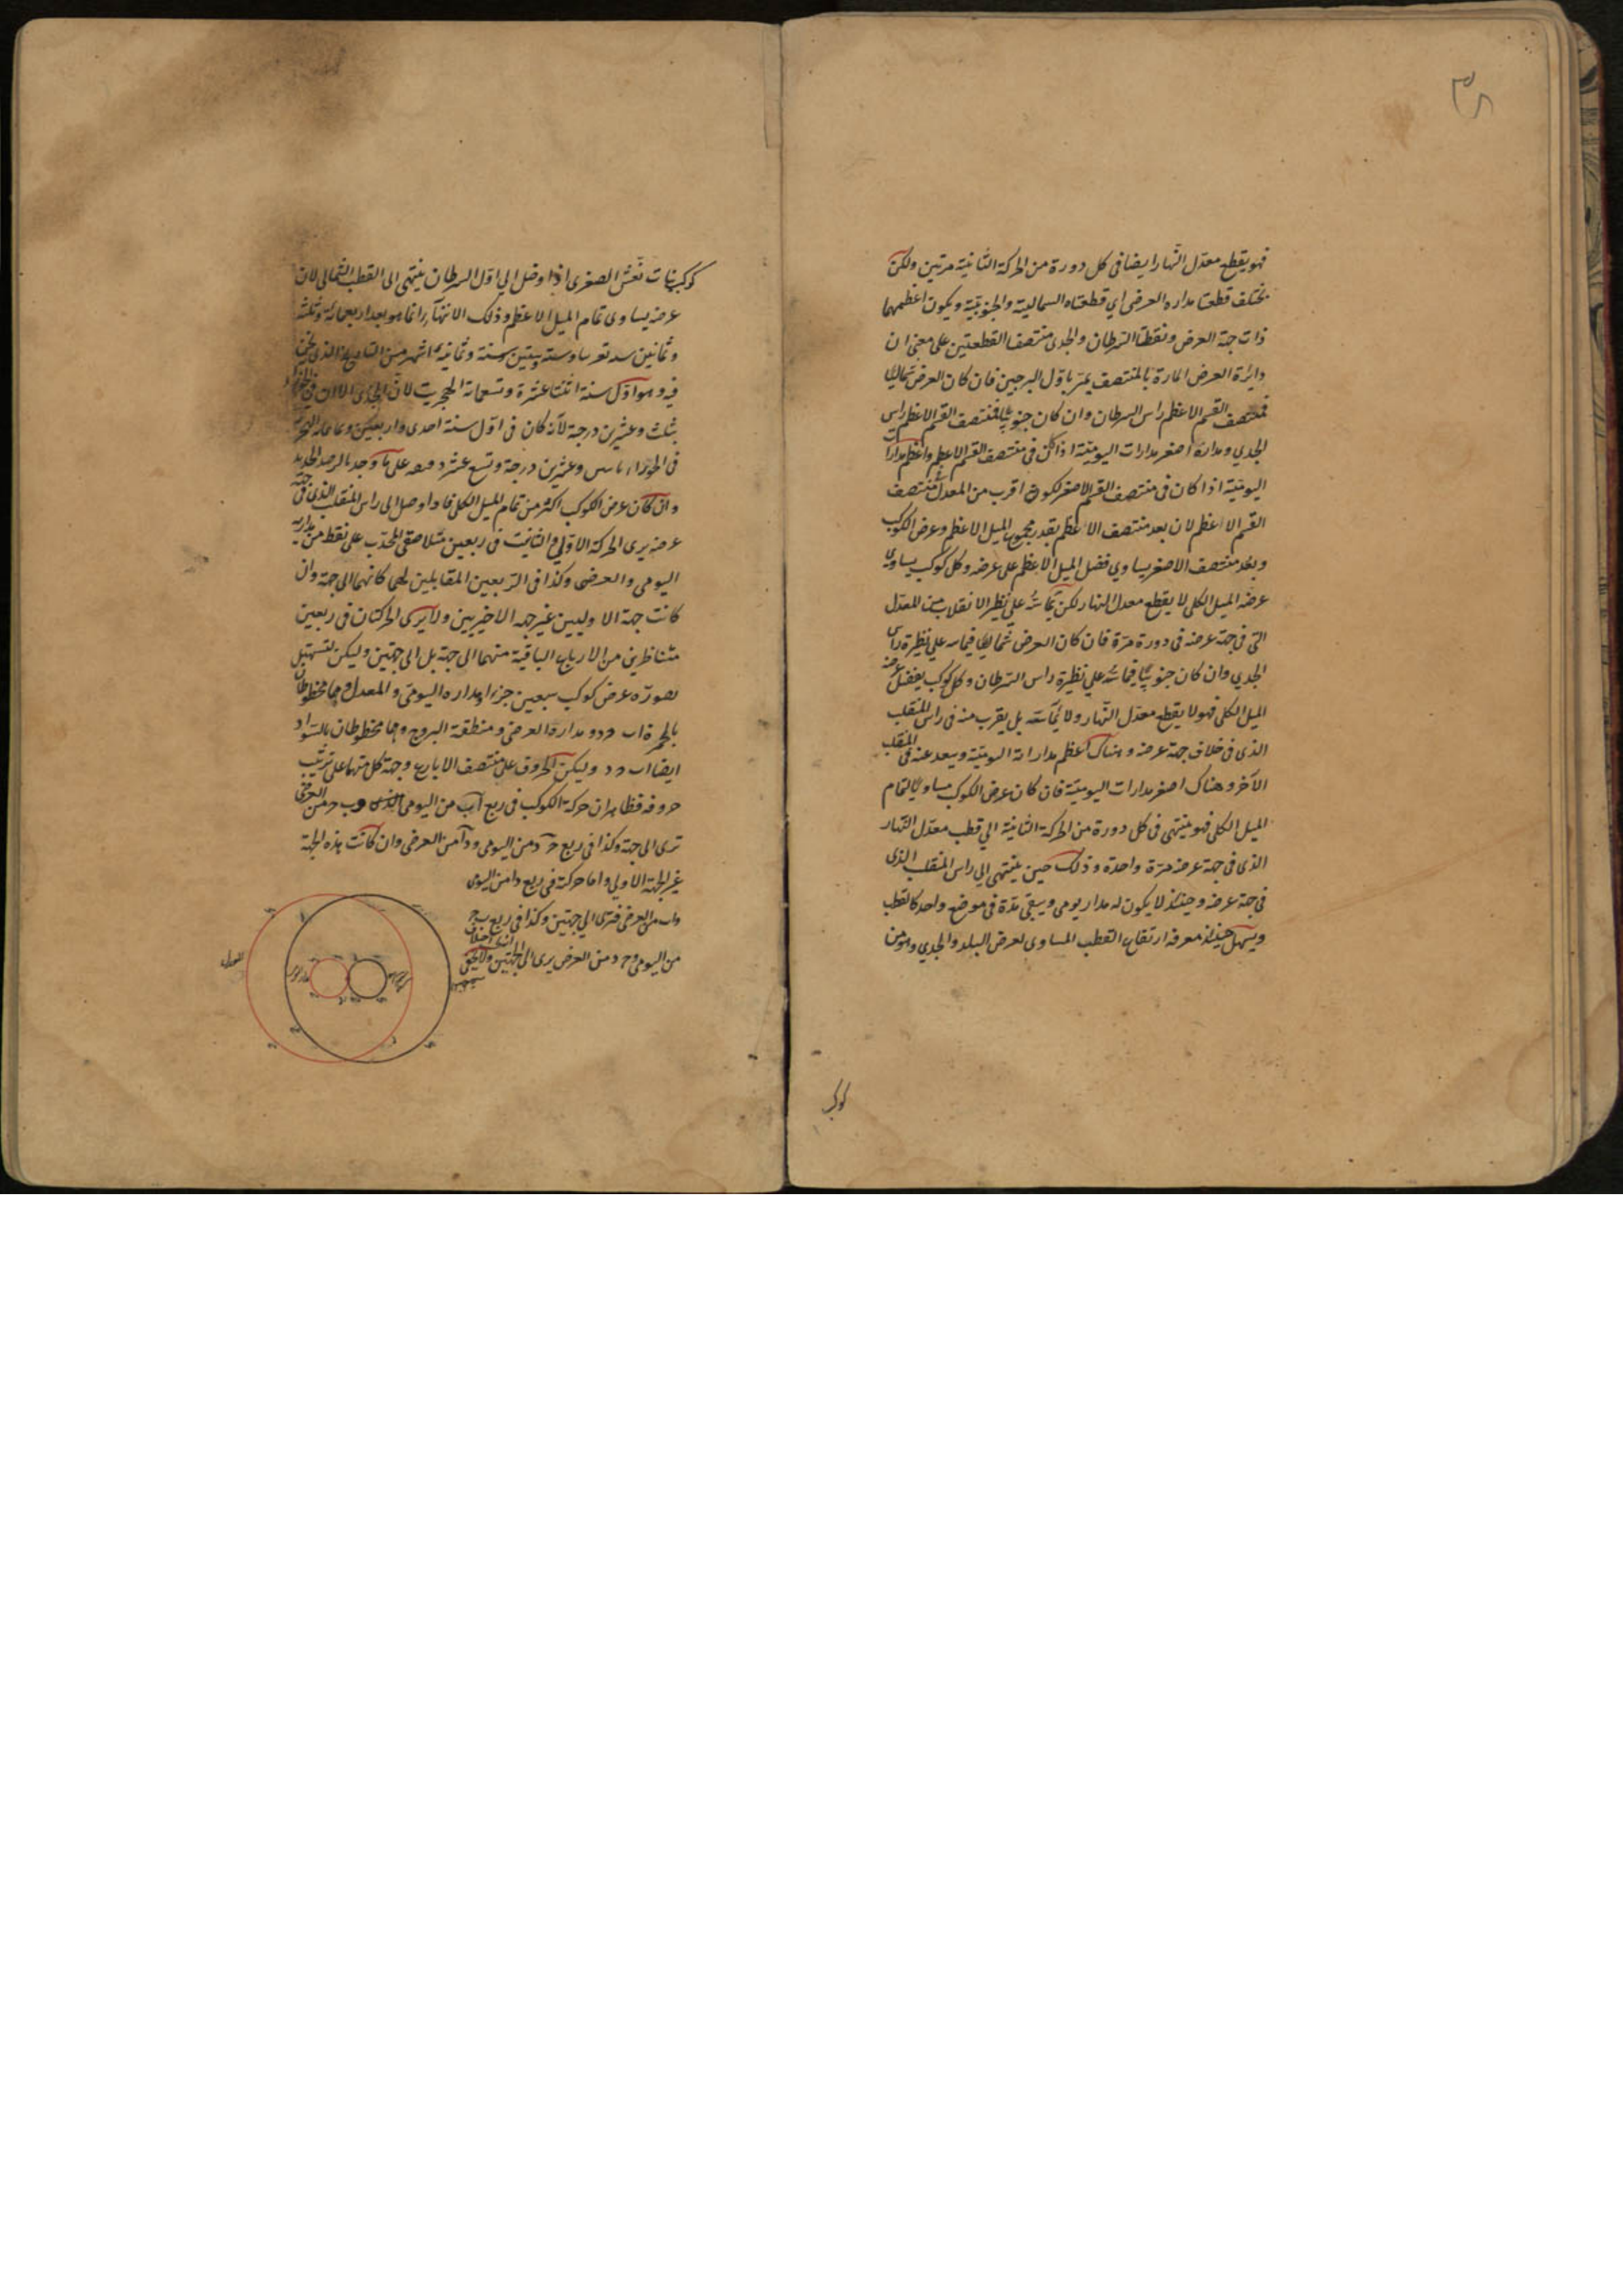 ٣٥
فهو يقطع معدّل النهار ايضا فى كل دورة من الحركة الثانية مرتين ولكن
يختلف قطعتا مداره العرضى اي قطعتاه الشمالية والجنوبية ويكون اعظمهما
ذات جهة العرض ونقطتا السرطان والجدى منتصفا القطعتين على معنى ان
دائرة العرض المارة بالمنتصف يمر باول البرجين فان كان العرض شماليا
فمنتصف القسم الاعظم راس السرطان وان كان جنوبيا فمنتصف القسم الاعظم راس
الجدي ومداره اصغر مدارات اليومية اذا كان فى منتصف القسم الاعظم واعظم مدارات
اليومية اذا كان فى منتصف القسم الاصغر لكونه اقرب من المعدل منتصف
القسم الاعظم لان بعد منتصف الاعظم بقدر مجموع الميل الاعظم وعرض الكوكب
وبعد منتصف الاصغر يساوي فضل الميل الاعظم على عرضه وكل كوكب يساوى
عرضه الميل الكلى لا يقطع معدل النهار لكن يماسه على نظير الانقلاب من المعدل
التى فى جهة عرضه فى دورة مرّة فان كان العرض شماليا فيماسه على نظيرة راس
الجدي وان كان جنوبيا فيماسه على نظيرة راس السرطان وكل كوكب يفضل عرضه
الميل الكلى فهو لا يقطع معدّل النهار ولا يماسه بل يقرب منه فى راس المنقلب
الذى فى خلاف جهة عرضه وهناك اعظم مداراته اليومية ويبعد عنه فى المنقلب
الآخر وهناك اصغر مدارات اليومية فان كان عرض الكوكب مساويا لتمام
الميل الكلى فهو ينتهى فى كل دورة من الحركة الثانية الي قطب معدّل النهار
الذى فى جهة عرضه مرّة واحدة وذلك حين ينتهى الي راس المنقلب الذى
فى جهة عرضه وحينئذ لا يكون له مدار يومى ويبقى مدّة فى موضع واحد كالقطب
ويسهل حينئذ معرفة ارتفاع القطب المساوى لعرض البلد والجدي وهو من
كوكب
كوكب بنات نعش الصغرى اذا وصل الى اول السرطان ينتهى الى القطب الشمالى لان
عرضه يساوى تمام الميل الاعظم وذلك الانتهاء انما هو بعد اربعمائة وثلثة
وثمانين وستة وستين سنة وثمانية اشهر من التاريخ الذى نحن
فيه وهو اول سنة اثنتا عشرة وتسعمائة الهجرية لان الجدى الآن فى
ثلث وعشرين درجة لانه كان فى اول سنة احدى واربعين وثمانمائة
فى الجوزاء وعشرين درجة وتسع عشر دقيقه على ما وجد بالرصد الجديد
وان كان عرض الكوكب اكثر من تمام الميل الكلى فاذا وصل الى راس المنقلب الذى فى جهة
عرضه يرى الحركة الاولى والثانية فى ربعين متلاصقى المحدّب على نقطة من مداريه
اليومى والعرضى وكذا فى الربعين المقابلين لهما كانهما الى جهة وان
كانت جهة الاوليين غير جهة الاخيريين ولا يرى الحركتان فى ربعين
متناظرين من الارباع الباقية منهما الى جهة بل الى جهتين وليكن لتسهيل
تصوره عرض كوكب سبعين جزءا ومداره اليومى والمعدل وهما مخطوطان
بالحمرة ا ب ح د ومداره العرضى ومنطقة البروج وهما مخطوطان بالسّواد
ايضا ا ب ح د وليكن الحروف على منتصف الارباع وجهة كل منهما على ترتيب
حروفه فظاهر ان حركة الكوكب فى ربع ا ب من اليومى و ب ح من العرضى
ترى الى جهة وكذا فى ربع ح د من اليومى و د ا من العرضى وان كانت هذه الجهة
غير الجهة الاولي واما حركته فى ربع د ا من اليومى
و ا ب من العرضى فترى الي جهتين وكذا فى ربع ب ح
من اليومى و ح د من العرضى يرى الى الجهتين ولا يخفى